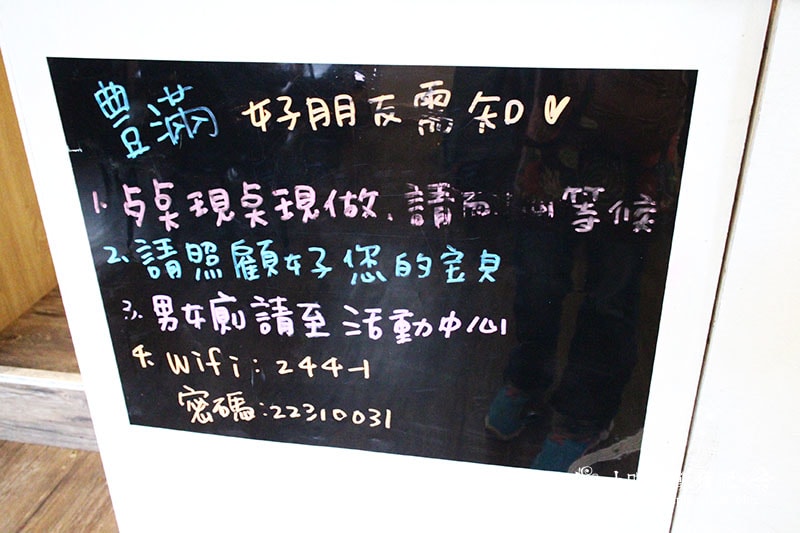 豐滿 好朋友需知♡
1. 桌現桌現做、請 等候
2. 請照顧好您的宝貝
3. 男女廁請至活動中心
4. Wifi:244-1
密碼:22310031